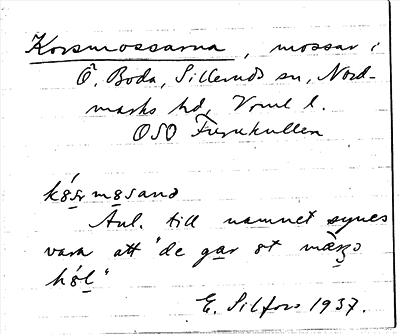 Korsmossarna, mossar i
Ö. Boda, Silleruds sn, Nord-
marks hd, Vrml l.
OSO Furukullen
Anl. till namnet synes
vara att "de gar
E. Silfors 1937.